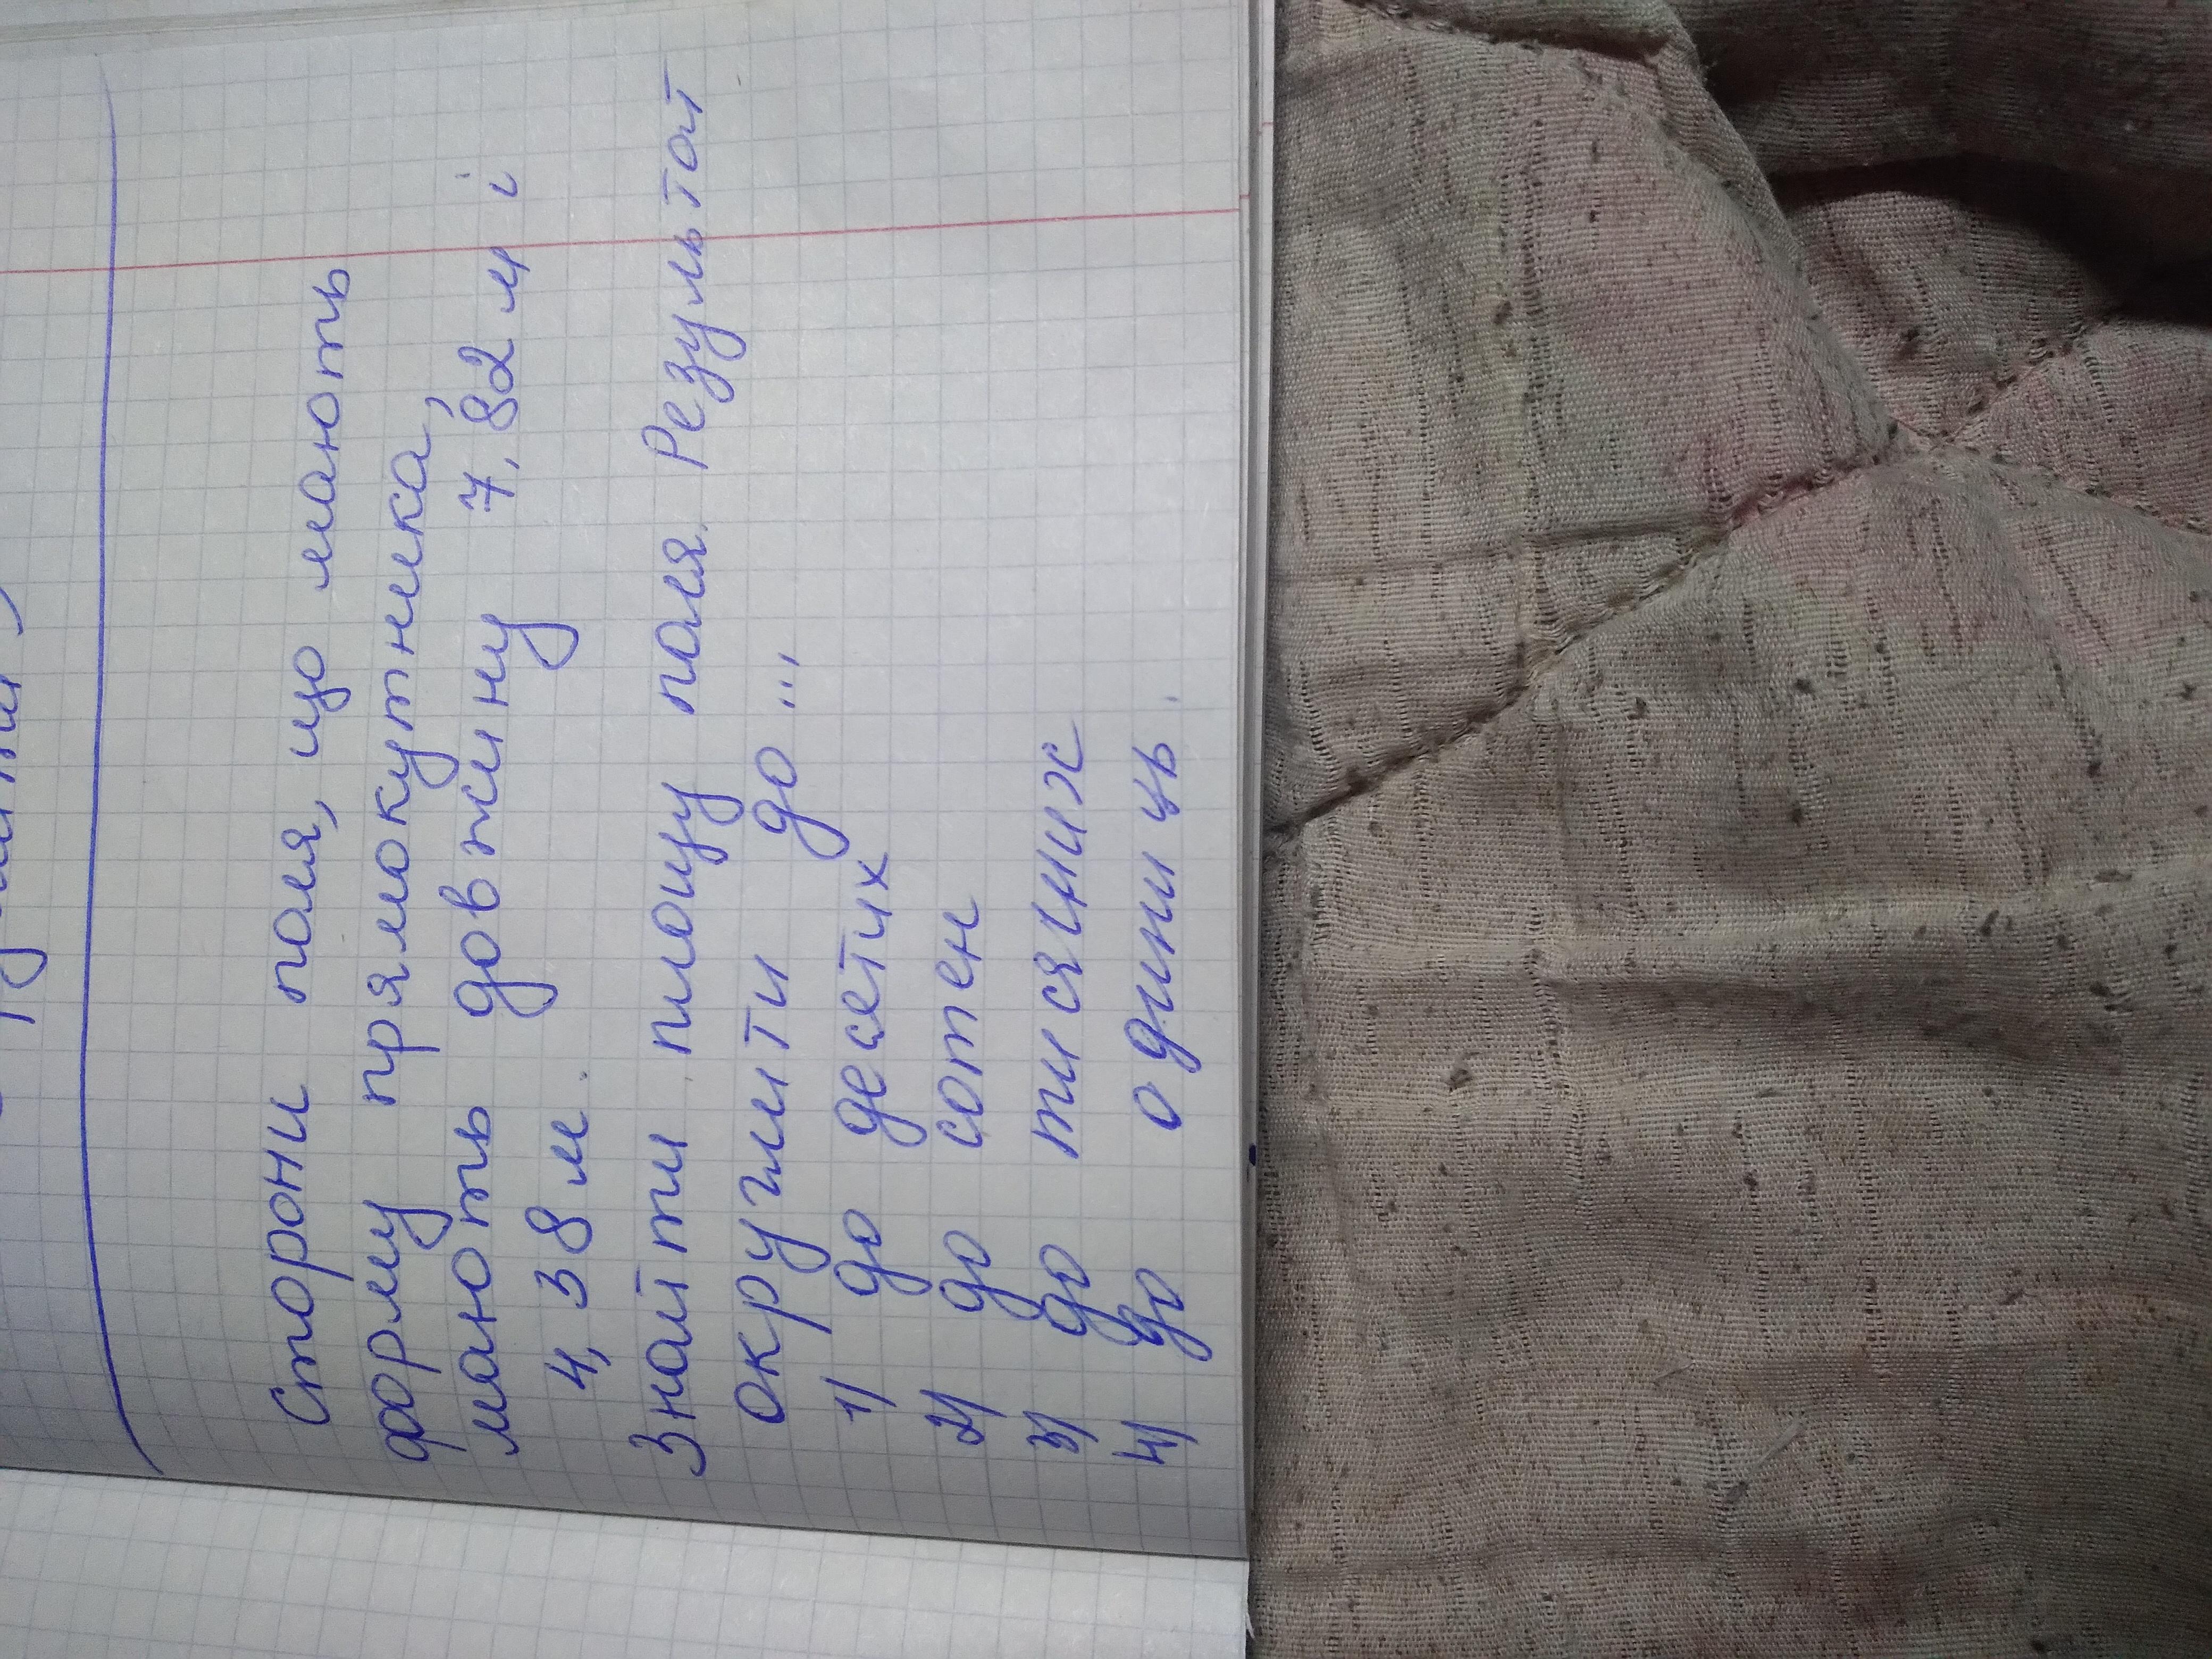 Сторони поля, що мають
форму прямокутника,
мають довжину 7,82 м і
4,38 м.
Знайти площу поля. Результат
округлити до...
1) до десятих
2) до сотен
3) до тисячних
4) до одиниць.